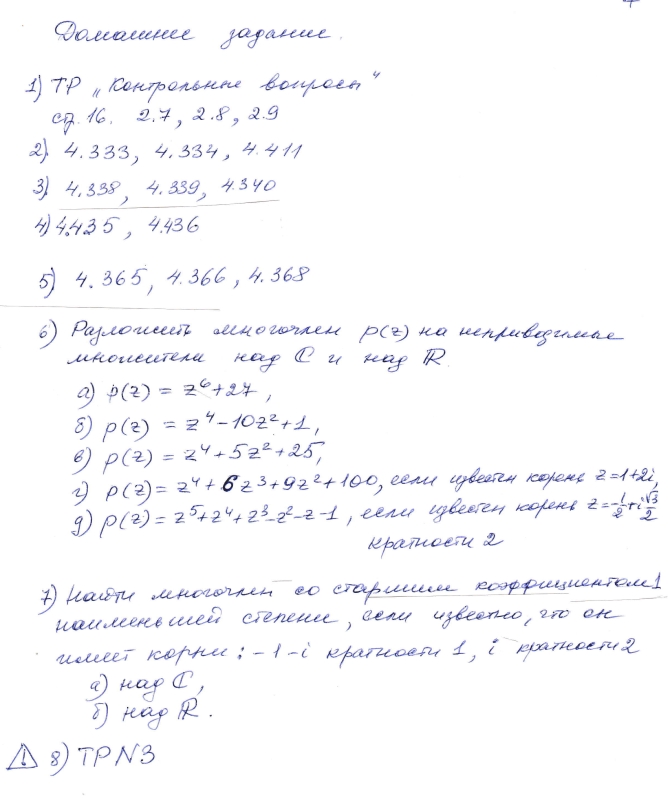 Домашнее задание.
1) ТР „Контрольные вопросы"
стр. 16. 2.7, 2.8, 2.9
2) 4.333, 4.334, 4.411
3) 4.338, 4.339, 4.340
4) 4.435, 4.436
5) 4.365, 4.366, 4.368
6) Разложить многочлен p(z) на неприводимые
множители над ℂ и над ℝ.
а) p(z) = z⁶+27,
б) p(z) = z⁴-10z²+1,
в) p(z) = z⁴+5z²+25,
г) p(z) = z⁴+6z³+9z²+100, если известен корень z=1+2i,
д) p(z) = z⁵+z⁴+z³-z²-z-1, если известен корень z=-1/2+i√3/2
кратности 2
7) Найти многочлен со старшим коэффициентом 1
наименьшей степени, если известно, что он
имеет корни: -1-i кратности 1, i кратности 2
а) над ℂ,
б) над ℝ.
! 8) ТР N3